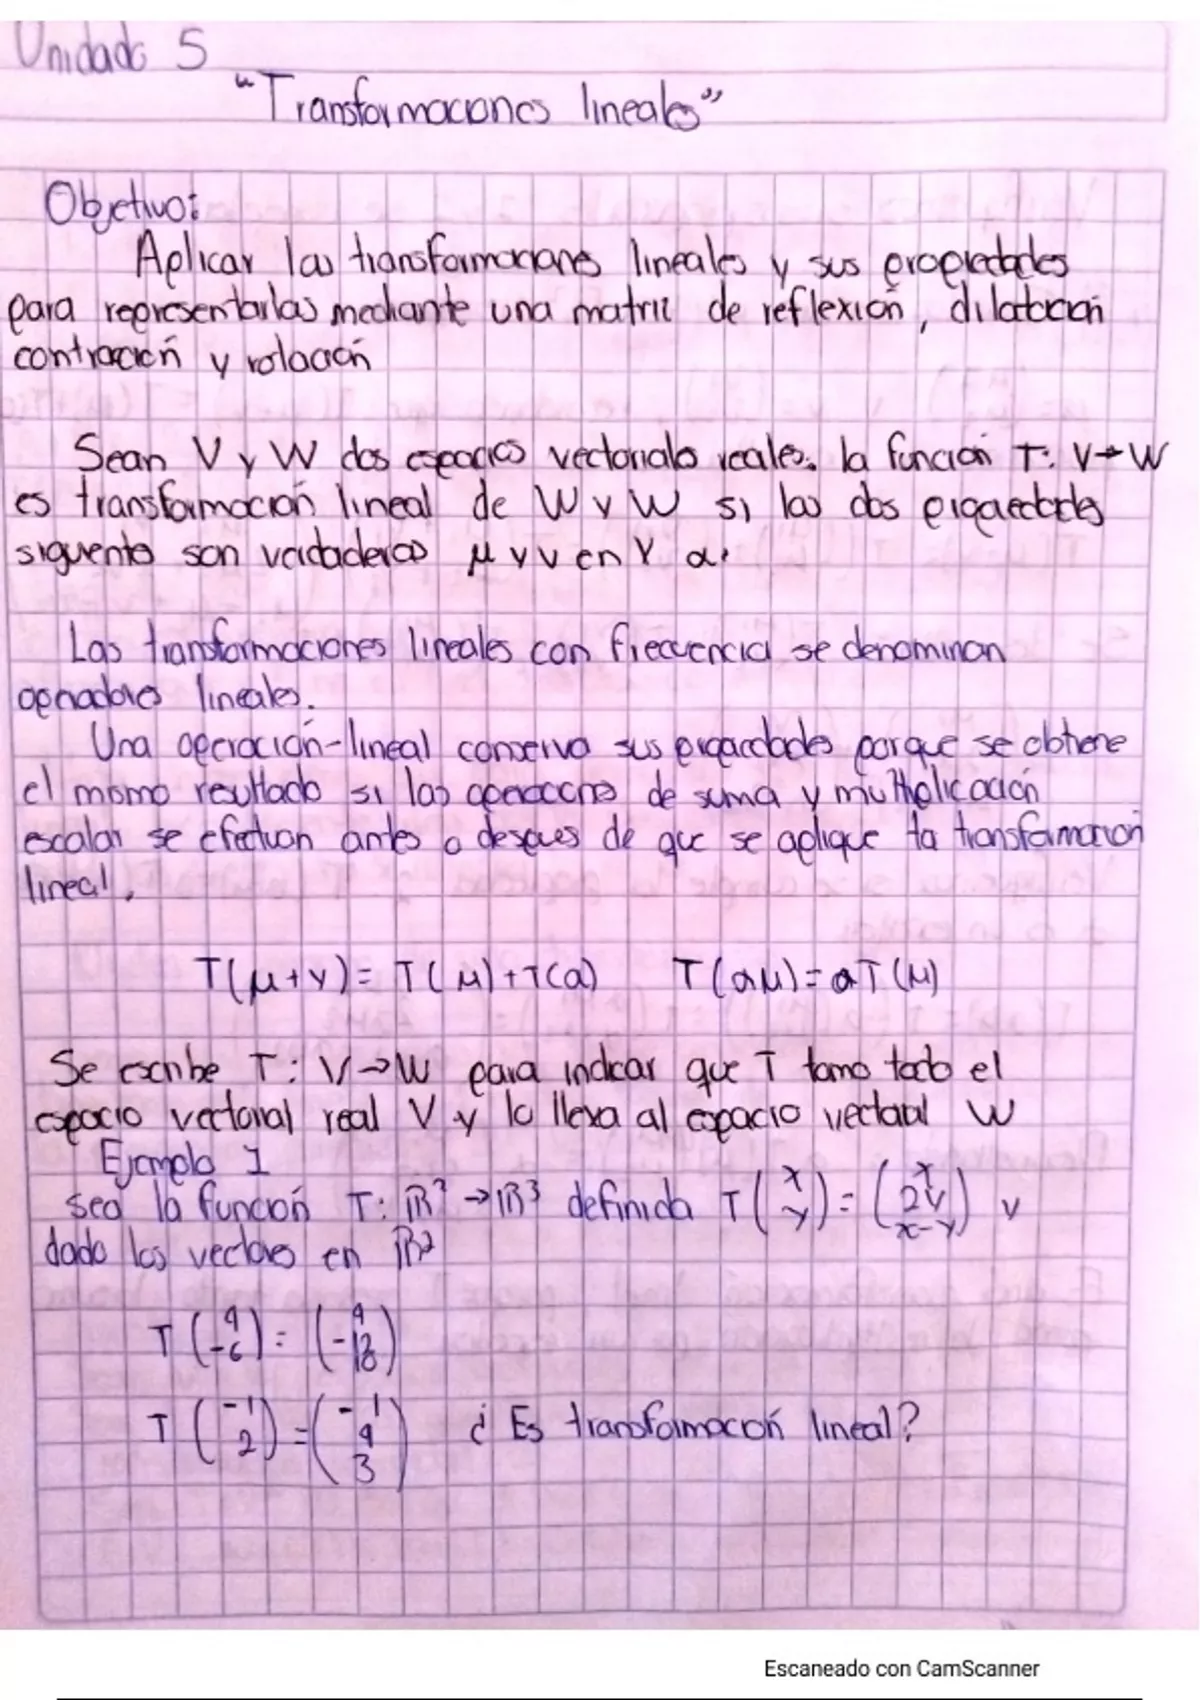 Unidado 5
"Transformaciones lineales"
Objetivo:
Aplicar las transformaciones lineales y sus propiedades
para representarlas mediante una matriz de reflexión, dilatación
contracción y rotación
Sean V y W dos espacios vectoriales reales. la función T: V→W
es transformación lineal de W y W si las dos propiedades
siguientes son verdaderas μ y v en V α.
Las transformaciones lineales con frecuencia se denominan
operadores lineales.
Una operación-lineal conserva sus propiedades porque se obtiene
el mismo resultado si las operaciones de suma y multiplicación
escalar se efectuan antes o despues de que se aplique la transformación
lineal.
T(μ+v)= T(μ)+T(a) T(αμ)=αT(μ)
Se escribe T: V→W para indicar que T toma todo el
espacio vectorial real V y lo lleva al espacio vectorial W
Ejemplo 1
sea la función T: ℝ² →ℝ³ definida T(x y)=(x 2y x-y) y
dado los vectores en ℝ²
T(4 -6)=(4 -12 10)
T(-1 2)=(-1 4 3) ¿Es transformación lineal?
Escaneado con CamScanner